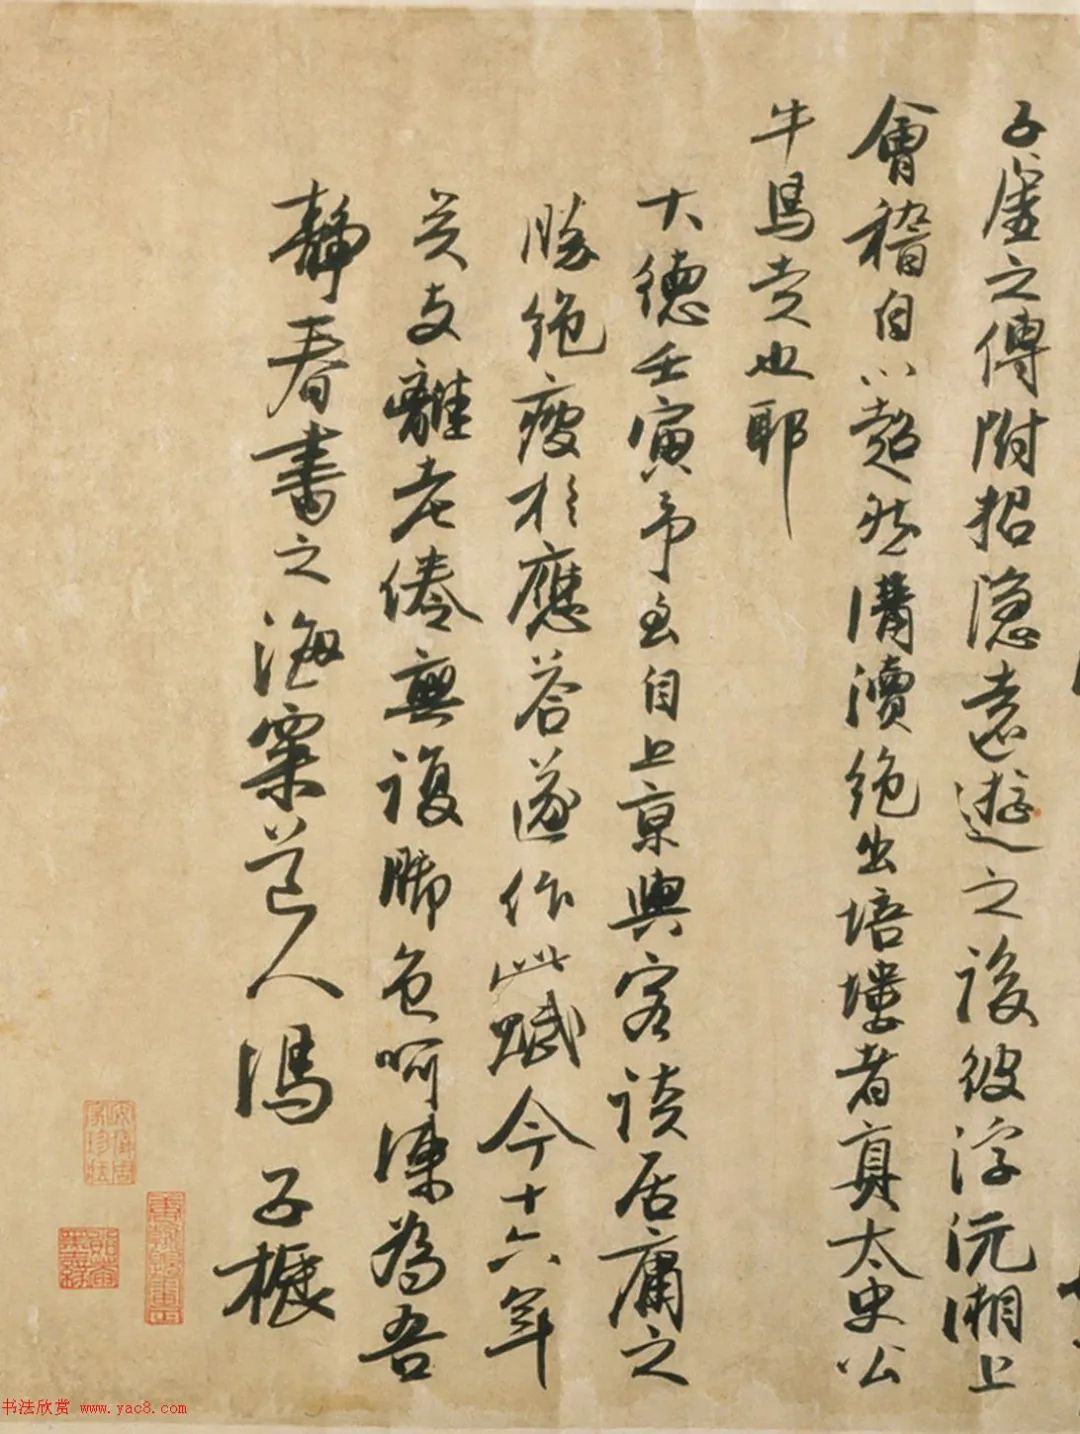 子虚之傳附招隠遠遊之後彼浮沅湘上
會稽自以超然溝瀆絶出培塿者真太史公
牛馬走也耶
大德壬寅予至自上京與客談居庸之
勝絶疲於應荅遂作此賦今十六年
矣支離老倦無復勝色呵凍為吾
靜春書之海粟道人馮子振
书法欣赏 www.yac8.com